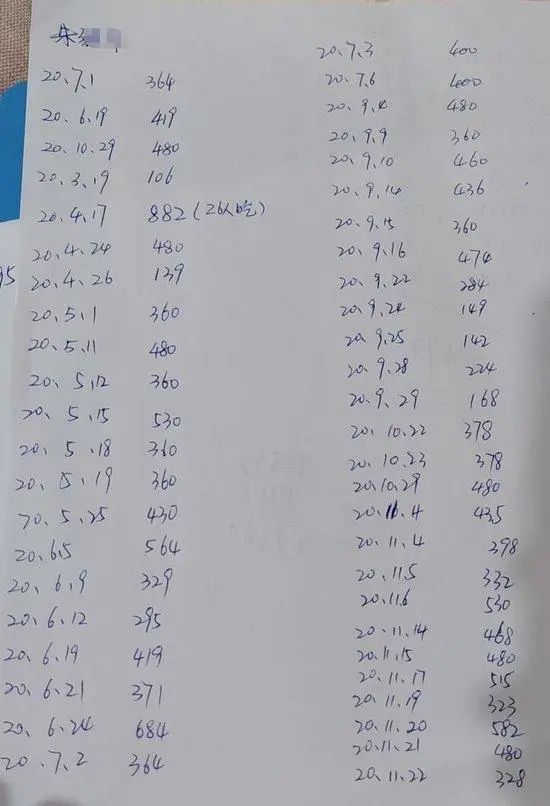 朱
20.7.1 364
20.6.19 419
20.10.29 480
20.3.19 106
20.4.17 882(26人吃)
20.4.24 480
95
20.4.26 139
20.5.1 360
20.5.11 480
20.5.12 360
20.5.15 530
20.5.18 360
20.5.19 360
20.5.25 430
20.6.5 564
20.6.9 329
20.6.12 295
20.6.19 419
20.6.21 371
20.6.24 684
20.7.2 364
20.7.3 400
20.7.6 400
20.9.4 480
20.9.9 360
20.9.10 460
20.9.14 436
20.9.15 360
20.9.16 474
20.9.22 284
20.9.24 149
20.9.25 142
20.9.28 224
20.9.29 168
20.10.22 378
20.10.23 378
20.10.29 480
20.11.4 435
20.11.4 398
20.11.5 332
20.11.6 530
20.11.14 468
20.11.15 480
20.11.17 515
20.11.19 323
20.11.20 582
20.11.21 480
20.11.22 328